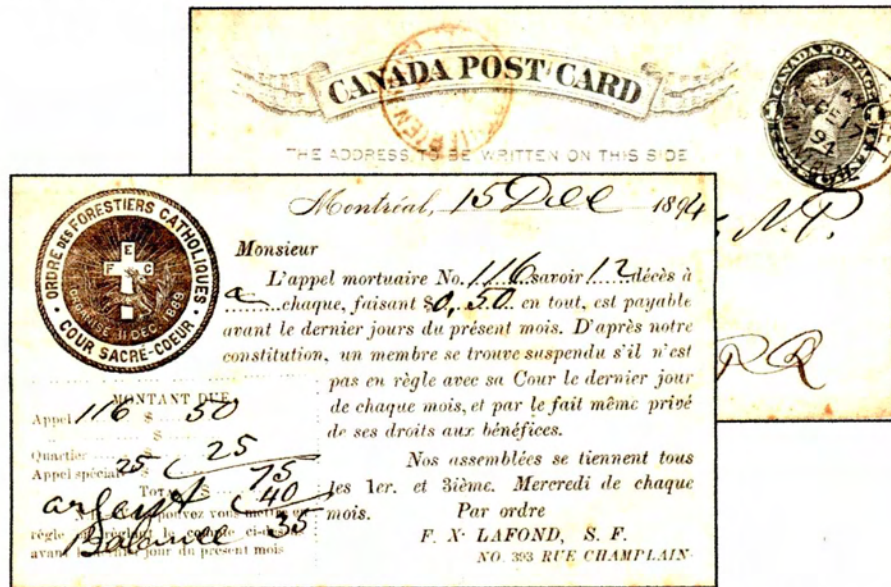 CANADA POST CARD
THE ADDRESS TO BE WRITTEN ON THIS SIDE
CANADA POSTAGE
17
94
N.P.
P Q
ORDRE DES FORESTIERS CATHOLIQUES
E
F C
ORGANISÉ 31 DEC. 1869
COUR SACRÉ-COEUR
Montréal, 15 Dec 1894
Monsieur
L'appel mortuaire No. 116 savoir 12 décès à
chaque, faisant $0,50 en tout, est payable
avant le dernier jours du présent mois. D'après notre
constitution, un membre se trouve suspendu s'il n'est
pas en règle avec sa Cour le dernier jour
de chaque mois, et par le fait même privé
de ses droits aux bénéfices.
Nos assemblées se tiennent tous
les 1er. et 3ième. Mercredi de chaque
mois. Par ordre
F. X. LAFOND, S. F.
NO. 393 RUE CHAMPLAIN.
MONTANT DUE
Appel 116 $ 50
$
Quartier $ 25
Appel spécial 25 $
75
TOTAL $ 40
argent
35
pouvez vous mettre en
règle en réglant le compte ci-dessus
avant le dernier jour du présent mois